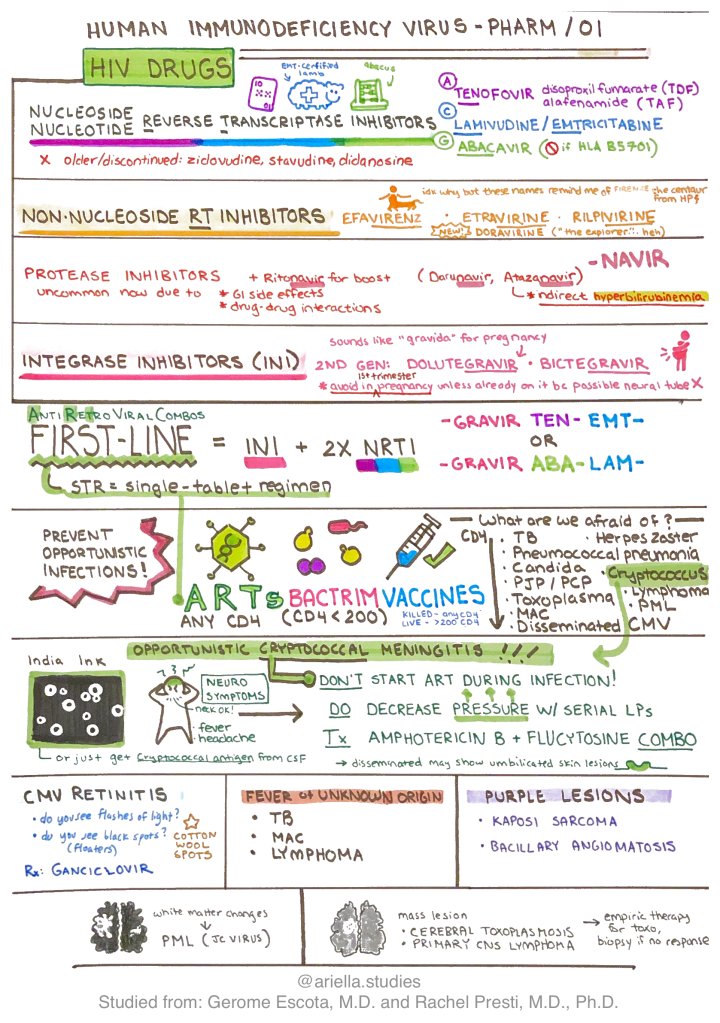 HUMAN IMMUNODEFICIENCY VIRUS - PHARM / OI
HIV DRUGS
EMT-certified
lamb
abacus
NUCLEOSIDE
NUCLEOTIDE REVERSE TRANSCRIPTASE INHIBITORS
X older/discontinued: zidovudine, stavudine, didanosine
A TENOFOVIR disoproxil fumarate (TDF)
alafenamide (TAF)
C LAMIVUDINE / EMTRICITABINE
G ABACAVIR (🚫 if HLA B5701)
NON-NUCLEOSIDE RT INHIBITORS
idk why but these names remind me of FIRENZE the centaur
from HP4
EFAVIRENZ · ETRAVIRINE · RILPIVIRINE
NEW! DORAVIRINE ("the explorer"... heh)
PROTEASE INHIBITORS + Ritonavir for boost (Darunavir, Atazanavir) -NAVIR
uncommon now due to * GI side effects
* drug-drug interactions
* indirect hyperbilirubinemia
INTEGRASE INHIBITORS (INI)
sounds like "gravida" for pregnancy
2ND GEN: DOLUTEGRAVIR · BICTEGRAVIR
1st trimester
* avoid in ^ pregnancy unless already on it bc possible neural tube X
ANTI RETRO VIRAL COMBOS
FIRST-LINE = INI + 2X NRTI
-GRAVIR TEN- EMT-
OR
-GRAVIR ABA- LAM-
STR = single-tablet regimen
PREVENT
OPPORTUNISTIC
INFECTIONS!
ARTs
ANY CD4
BACTRIM
(CD4 < 200)
VACCINES
KILLED - any CD4
LIVE - >200 CD4
What are we afraid of?
CD4
· TB
· Herpes Zoster
· Pneumococcal pneumonia
· Candida
· Cryptococcus
· PJP / PCP
· Lymphoma
· Toxoplasma
· PML
· MAC
· Disseminated CMV
OPPORTUNISTIC CRYPTOCOCCAL MENINGITIS !!!
India Ink
NEURO
SYMPTOMS
neck ok!
fever
headache
or just get cryptococcal antigen from CSF
DON'T START ART DURING INFECTION!
DO DECREASE PRESSURE W/ SERIAL LPs
Tx AMPHOTERICIN B + FLUCYTOSINE COMBO
→ disseminated may show umbilicated skin lesions
CMV RETINITIS
• do you see flashes of light?
• do you see black spots?
(floaters)
COTTON
WOOL
SPOTS
Rx: GANCICLOVIR
FEVER of UNKNOWN ORIGIN
• TB
• MAC
• LYMPHOMA
PURPLE LESIONS
• KAPOSI SARCOMA
• BACILLARY ANGIOMATOSIS
white matter changes
↓
PML (JC VIRUS)
mass lesion
• CEREBRAL TOXOPLASMOSIS
• PRIMARY CNS LYMPHOMA
→ empiric therapy
for toxo,
biopsy if no response
@ariella.studies
Studied from: Gerome Escota, M.D. and Rachel Presti, M.D., Ph.D.